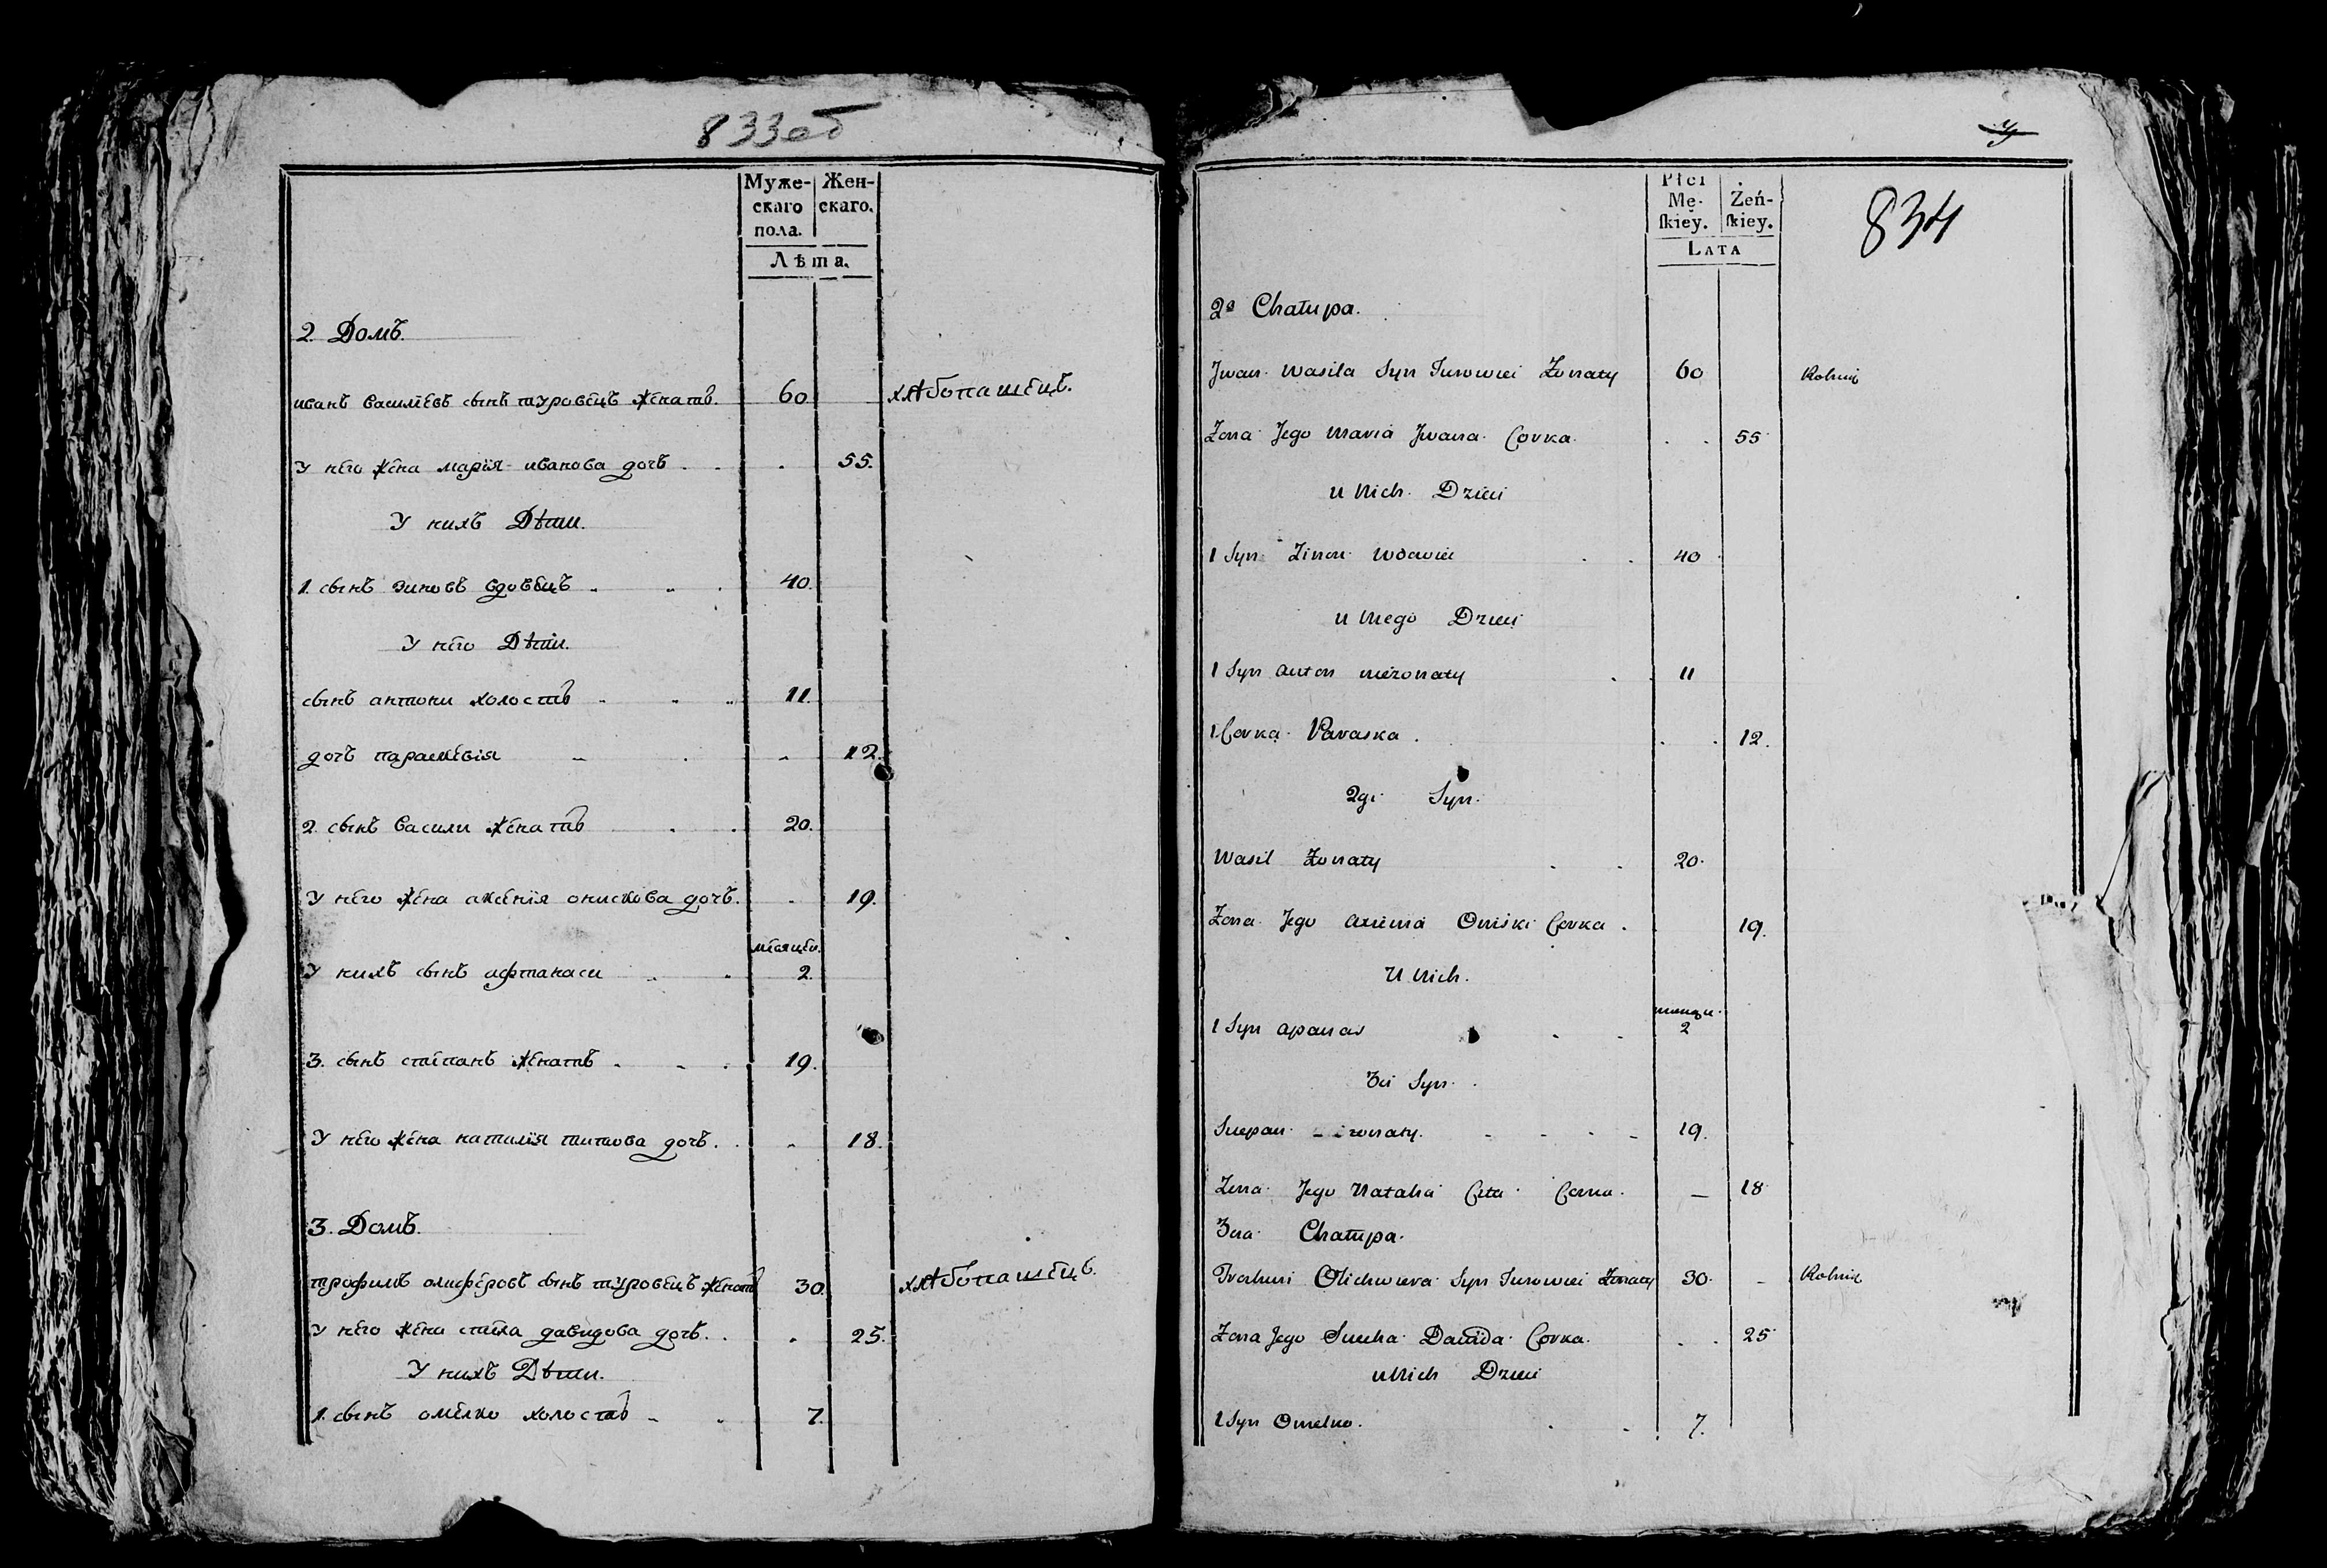 833об
Муже- Жен-
скаго скаго.
пола.
Лѣта.
2. Домъ.
иванъ василѣвъ сынъ туровецъ женатъ. 60 хлѣбопашецъ.
У него жена марїя иванова дочь . . . 55.
У нихъ Дѣти.
1. сынъ зиновъ вдовецъ . . . 40.
У него Дѣти.
сынъ антони холостъ . . . 11.
дочь параскевїя . . . 12.
2. сынъ васили женатъ . . . 20.
У него жена аксенїя онискова дочь. . 19.
месяцеи.
У нихъ сынъ афтанаси . . 2.
3. сынъ степанъ женатъ . . . 19.
У него жена наталїя титова дочь . . . 18.
3. Домъ.
трофимъ олиферовъ сынъ туровецъ женатъ 30. хлѣбопашецъ.
У него жена стеха давидова дочь. . . 25.
У нихъ Дѣти.
1. сынъ омелко холостъ . . 7.
834
Płci
Mę- Żeń-
ſkiey. ſkiey.
LATA
2a Chałupa.
Jwan Wasila Syn Turowiec Żonaty 60 Rolnik
Żona Jego Maria Jwana Corka . . 55
u Nich Dzieci
1 Syn Zinon Wdowiec . . 40
u Niego Dzieci
1 Syn Anton nieżonaty . . 11
1 Corka Paraska . . . 12.
2gi Syn.
Wasil Żonaty . . 20.
Żona Jego Axienia Oniski Corka . 19.
U Nich.
1 Syn Apanas . . 2
3ci Syn.
Sciepan żonaty. - - - - 19.
Żona Jego Natalia Cita Corka. — 18
3cia Chałupa.
Trochim Olichwiera Syn Turowiec Żonaty 30. - Rolnik
Żona Jego Sciecha Dawida Corka. . . 25
u Nich Dzieci
1 Syn Omelko. . . 7.